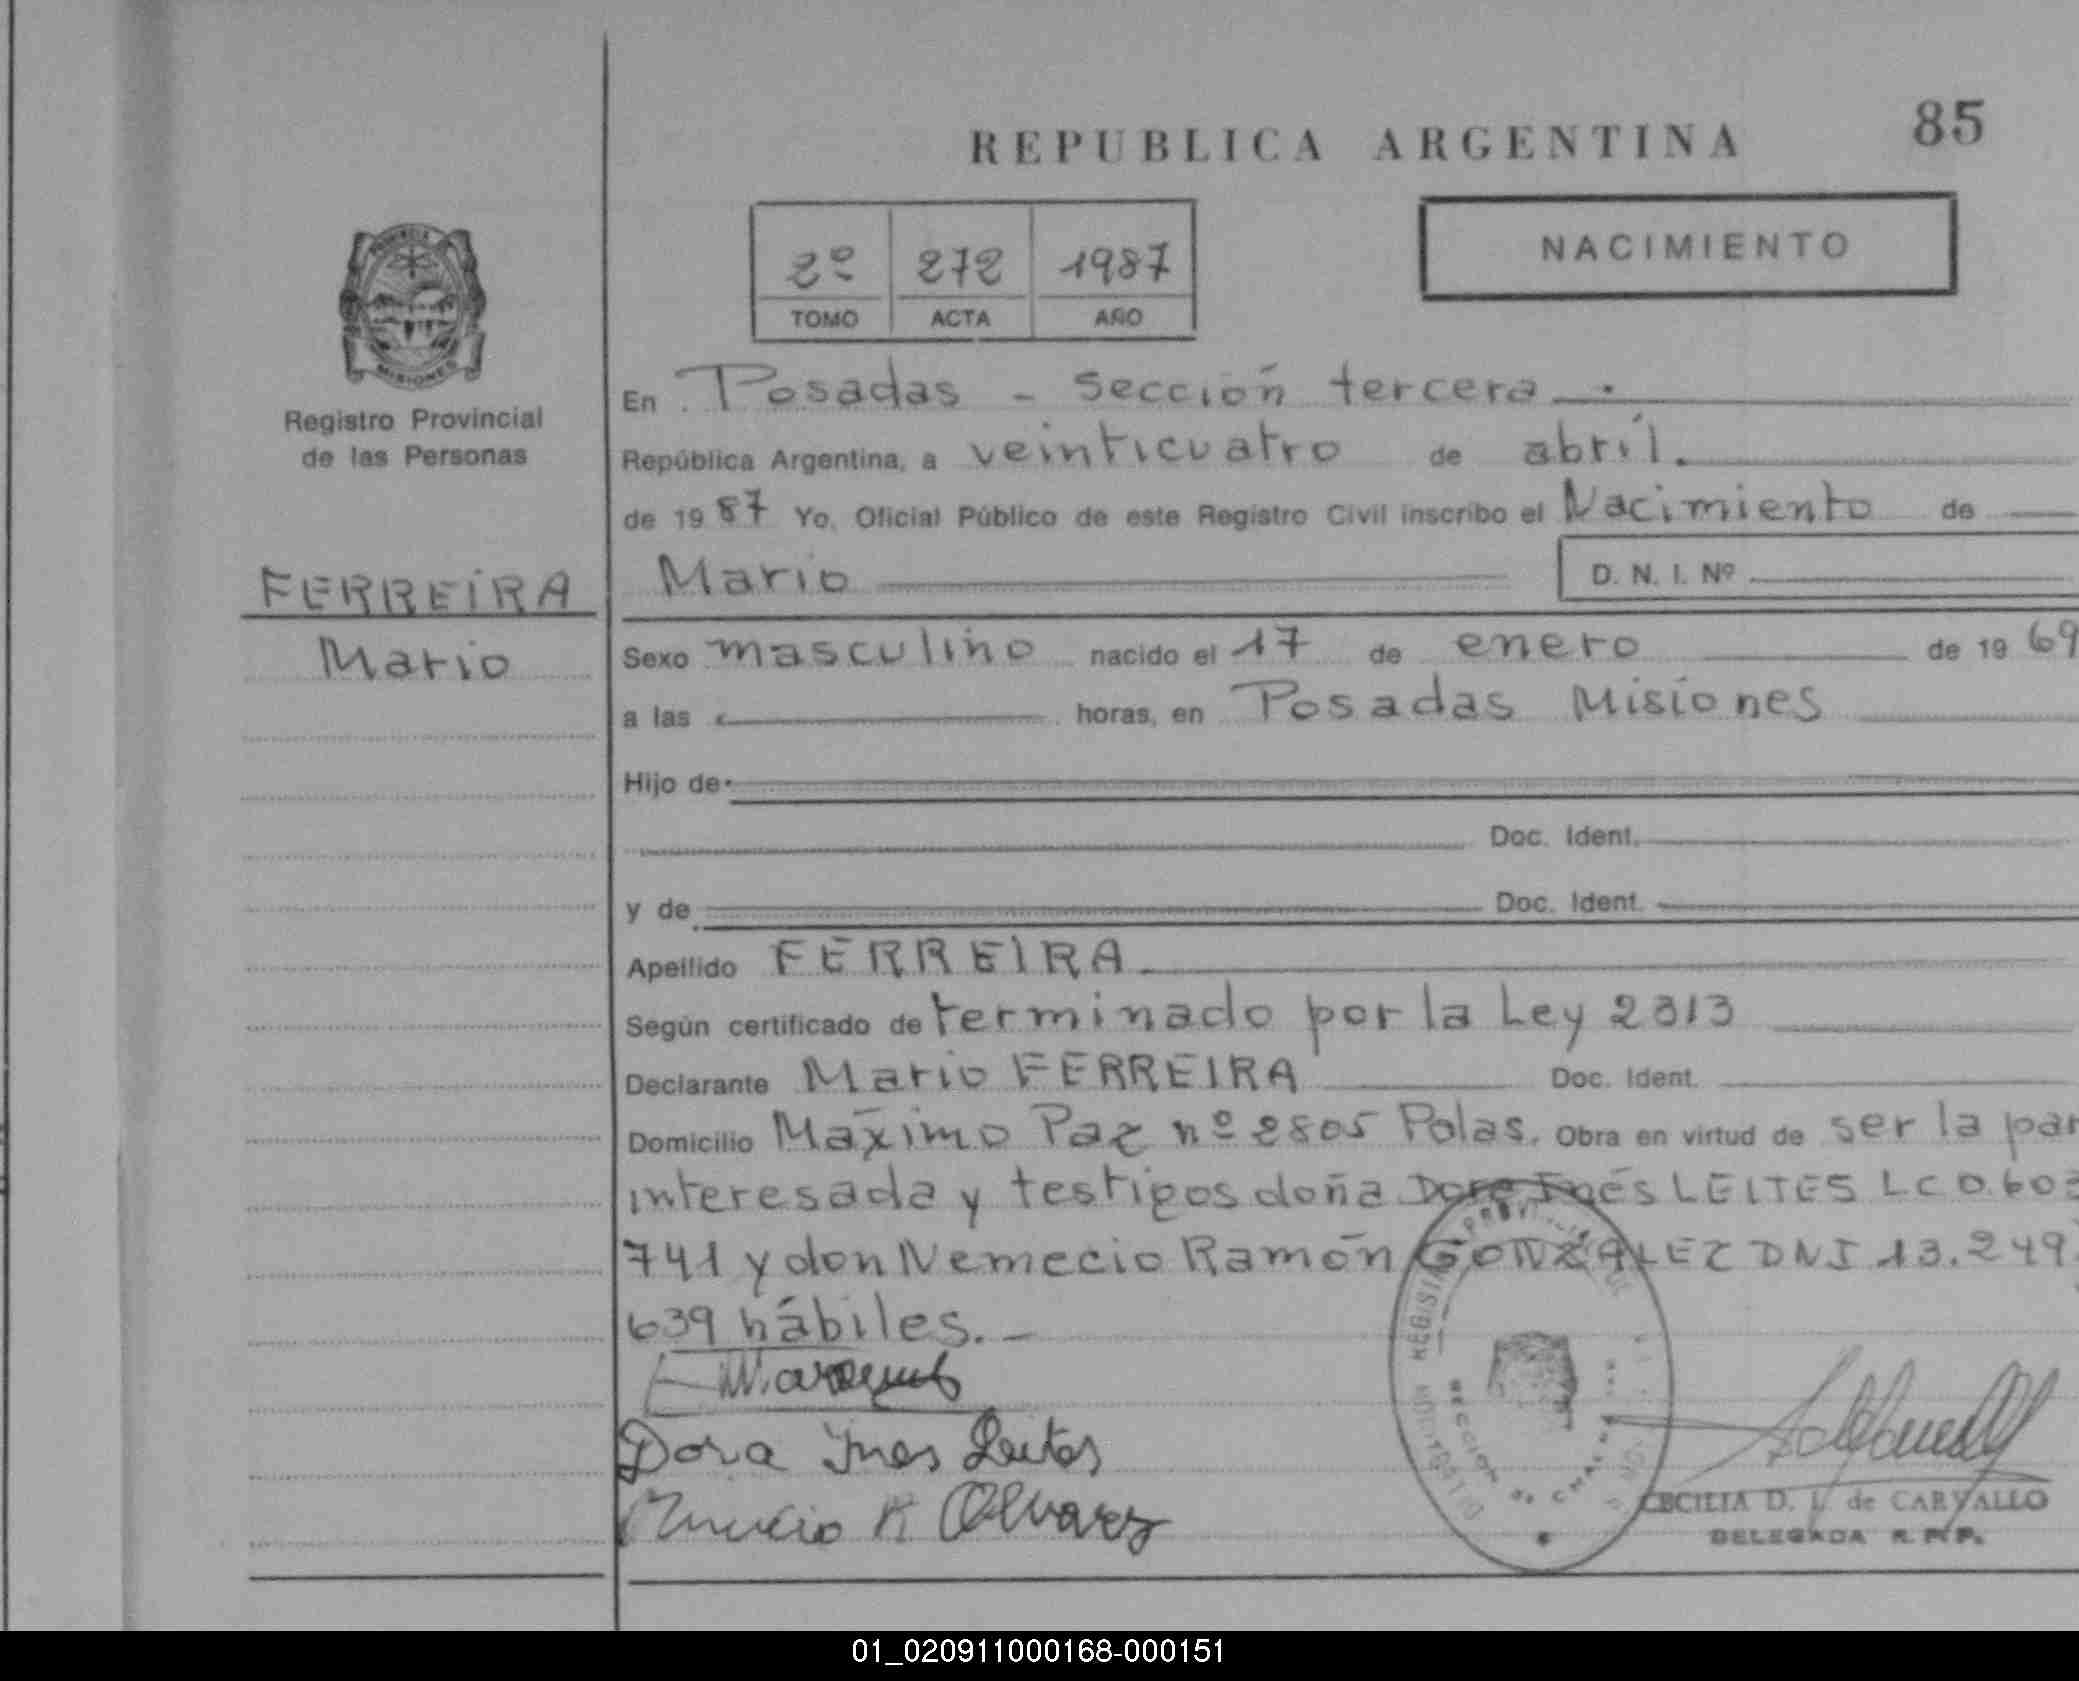 REPUBLICA ARGENTINA
85
2º 272 1987
TOMO ACTA AÑO
NACIMIENTO
PROVINCIA
MISIONES
Registro Provincial
de las Personas
FERREIRA
Mario
En Posadas - Sección tercera.
República Argentina, a veinticuatro de abril.
de 1987 Yo, Oficial Público de este Registro Civil inscribo el Nacimiento de
Mario D. N. I. Nº
Sexo masculino nacido el 17 de enero de 1969
a las horas, en Posadas Misiones
Hijo de
Doc. Ident.
y de Doc. Ident.
Apellido FERREIRA
Según certificado determinado por la Ley 2313
Declarante Mario FERREIRA Doc. Ident.
Domicilio Máximo Paz nº 2805 Pdas. Obra en virtud de ser la par
interesada y testigos doña Dora Inés LEITES LC 0.603
741 y don Nemecio Ramón GONZALEZ DNI 13.249.
639 hábiles.-
Dora Ines Leites
CECILIA D. L. de CARVALLO
DELEGADA R. P. P.
01_020911000168-000151